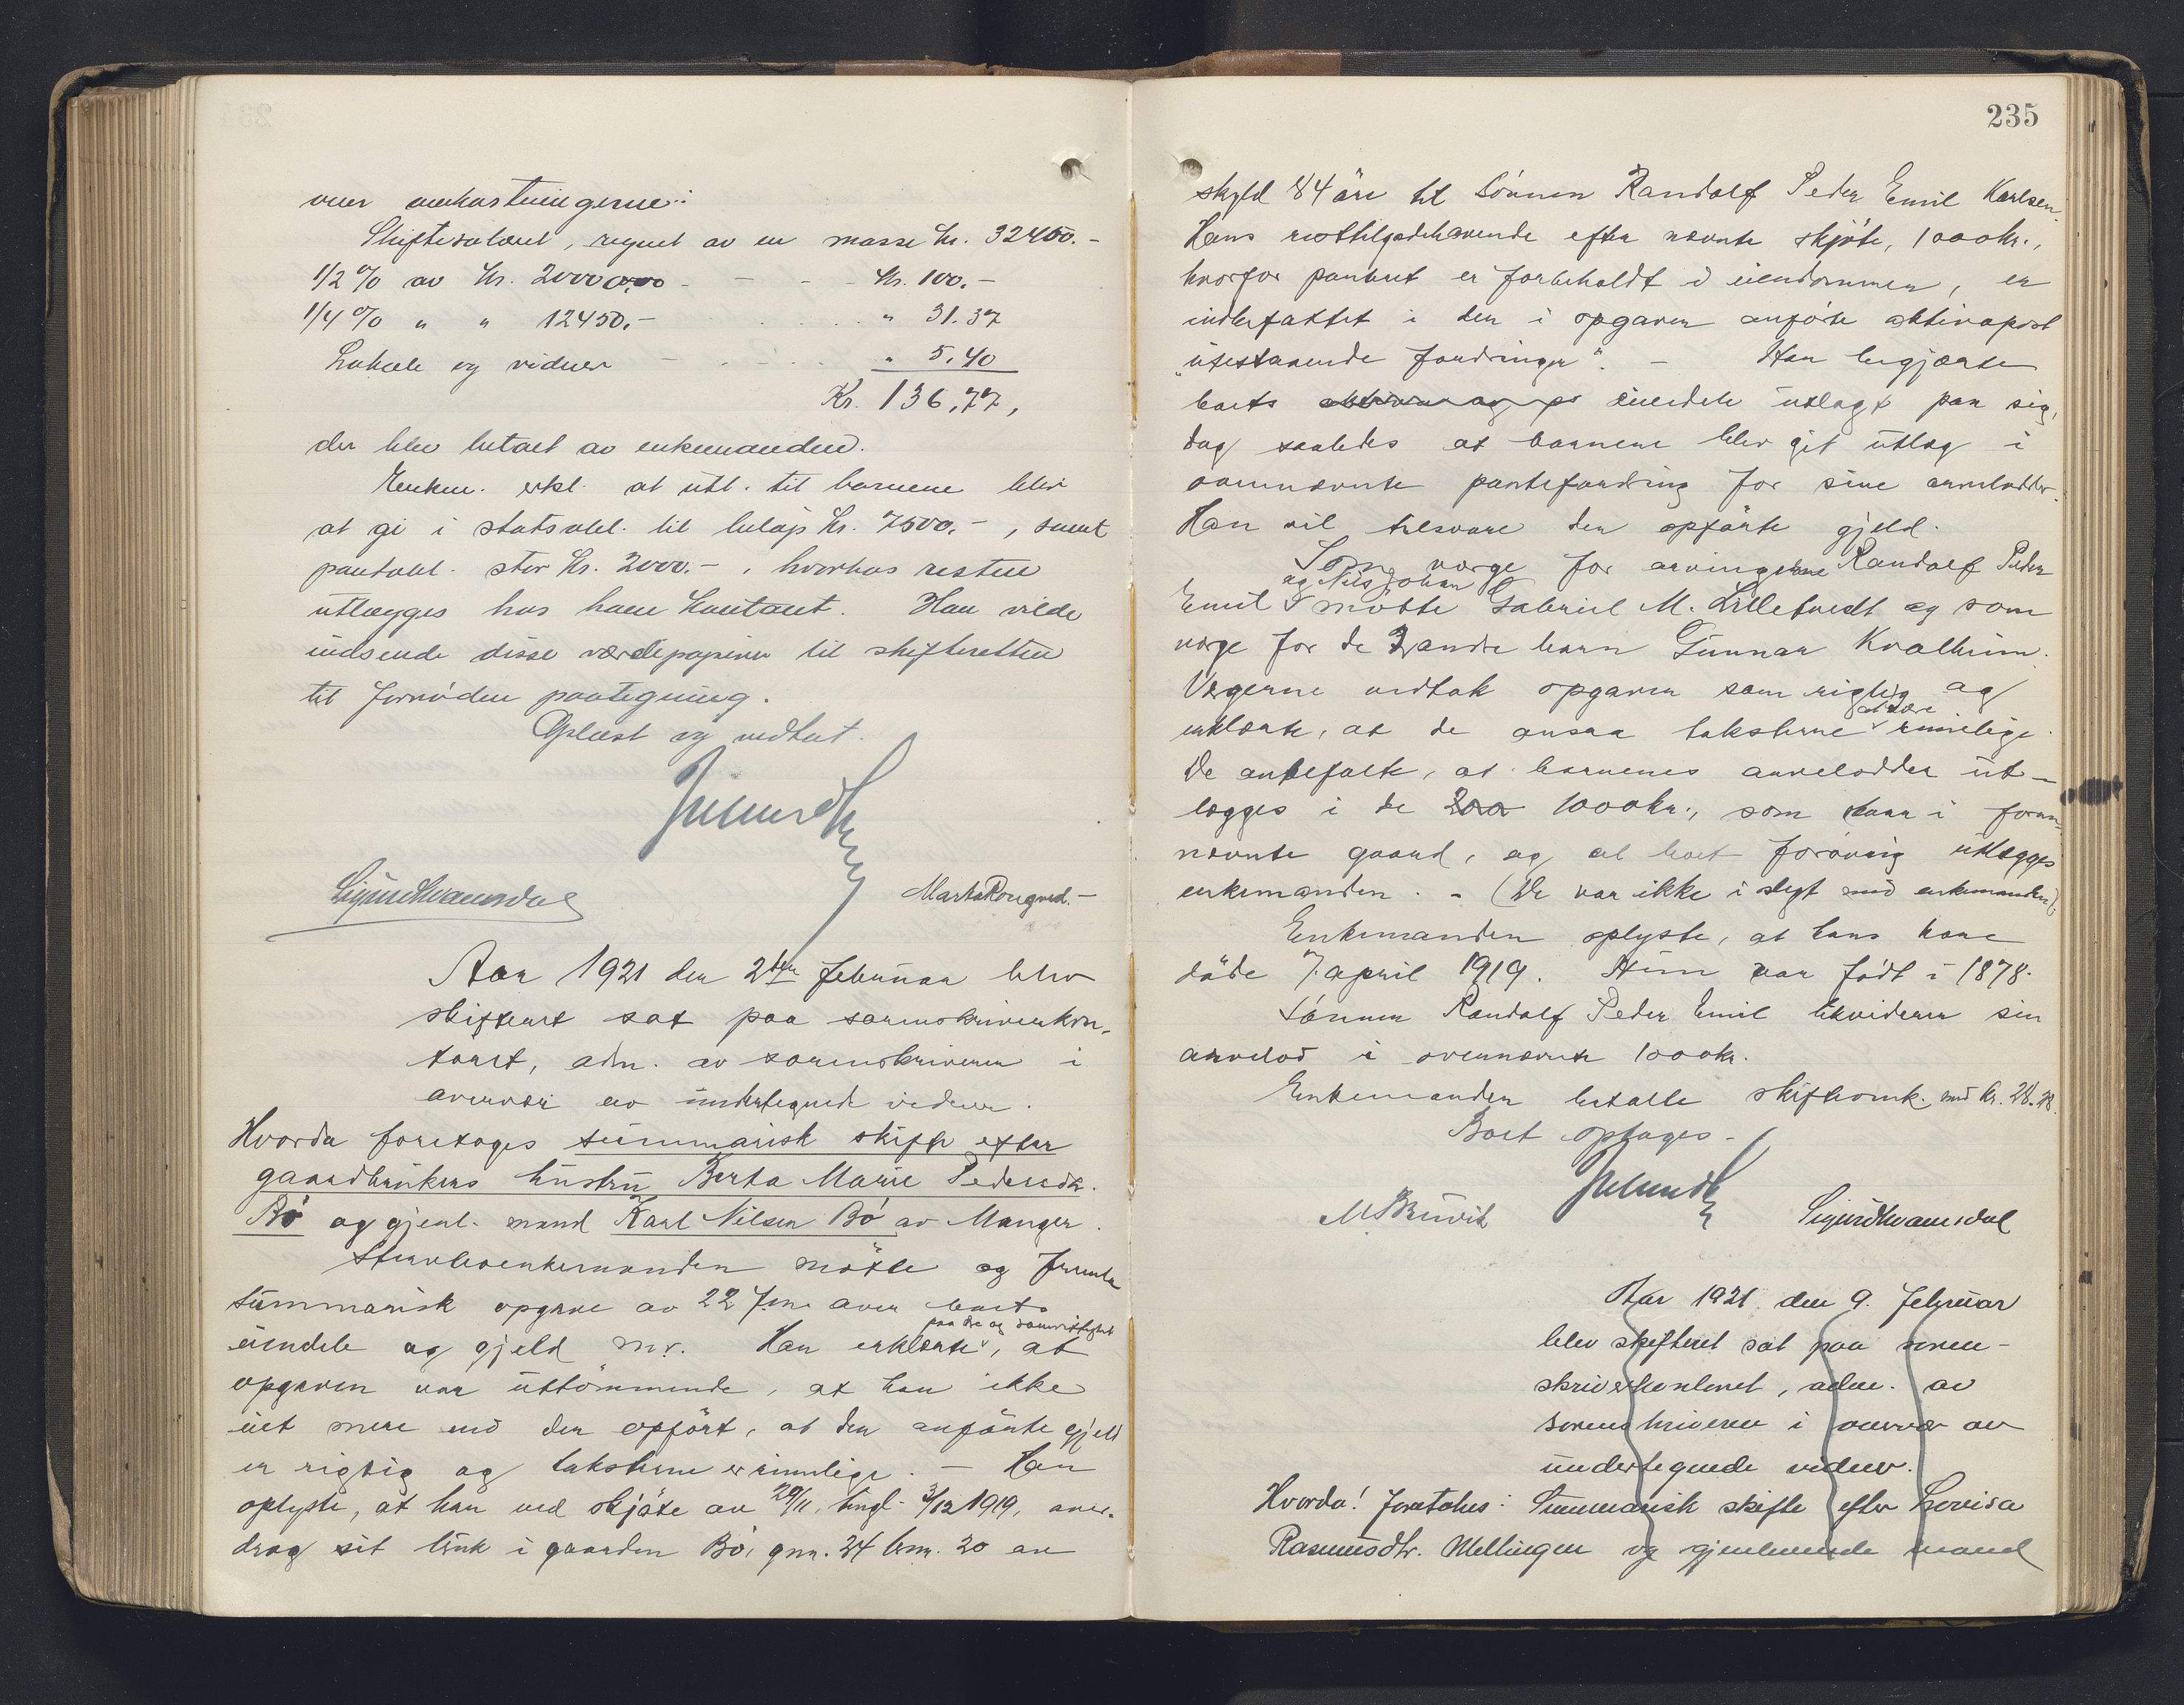 over omkostningerne:
Skiftesalæret, regnet av en masse kr. 32450.-
1/2 % av kr. 20000,00 - - - kr. 100.-
1/4 % " " 12450.- " 31.37
Lokale og vidner - " 5.40
Kr. 136,77,
der blev betalt av enkemanden.
Enkem. erkl. at utl. til barnene blir
at gi i statsobl. til beløp kr. 7500.-, samt
pantobl. stor kr. 2000.-, hvorhos resten
utlægges hos ham kontant. Han vilde
indsende disse værdipapirer til skifteretten
til fornøden paategning.
Oplæst og vedtat.
Sigurd Kvamsdal
Marta Rongved.-
Aar 1921 den 2den februar blev
skifteret sat paa sorenskriverkon-
toret, adm. av sorenskriveren i
overvær av undertegnede vidner.
Hvorda foretoges summarisk skifte efter
gaardbrukers hustru Berta Marie Pedersdtr.
Bø og gjenl. mand Karl Nilsen Bø av Manger.
Stervboenkemanden møtte og fremla
summarisk opgave av 22 f.m. over boets
paa ære og samvittighet
eiendele og gjeld m.v. Han erklærte, at
opgaven var uttømmende, at han ikke
vet mere end der opført, at den anførte gjeld
er rigtig og taksterne er rimelige. - Han
oplyste, at han ved skjøte av 29/11, tingl. 3/12 1919, over-
drog sit bruk i gaarden Bø, gnr. 24 brnr. 20 av
235
skyld 84 øre til sønnen Randolf Peder Emil Karlsen.
Hans resttilgodehavende efter nævnte skjøte, 1000 kr.,
hvorfor panteret er forbeholdt i eiendommen, er
indbefattet i den i opgaven anførte aktivapost
"utestaaende fordringer". - Han begjærte
boets eiendele utlagt paa sig,
dog saaledes at barnene blev git utlæg i
ovennævnte pantefordring for sine arvelodder.
Han vil tilsvare den opførte gjeld.
Som verge for arvingerne Randolf Peder
og Nils Johan
Emil møtte Gabriel M. Lilletvedt og som
verge for de 2 andre barn Gunnar Kvalheim.
Vergerne vedtok opgaven som rigtig og
at være
erklærte, at de ansaa taksterne rimelige.
De anbefalte, at barnenes arvelodder ut-
lægges i de 1000 kr., som staar i foran-
nævnte gaard, og at boet forøvrig utlægges
enkemanden. - (De var ikke i slegt med enkemanden).
Enkemanden oplyste, at hans kone
døde 7. april 1919. Hun var født i 1878.
Sønnen Randolf Peder Emil likviderer sin
arvelod i ovennævnte 1000 kr.
Enkemanden betalte skifteomk. med kr. 28.78.
Boet optages.-
Sigurd Kvamsdal
Aar 1921 den 9. februar
blev skifteret sat paa soren-
skriverkontoret, adm. av
sorenskriveren i overvær av
undertegnede vidner.
Hvorda! foretokes: Summarisk skifte efter Lovisa
Rasmusdtr. Mellingen og gjenlevende mand